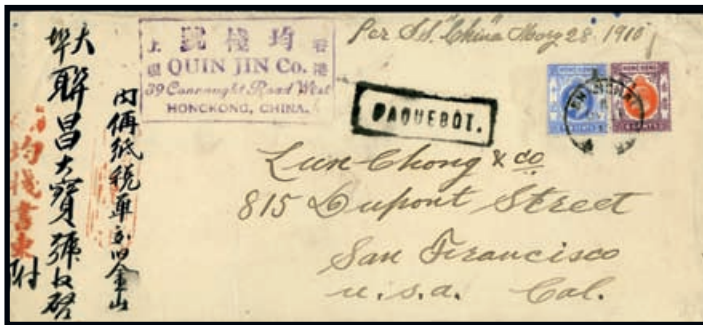 大埠聯昌大寶號收啓
均棧書柬付
內俌紙税單交旧金山
香港 均棧號 上環
QUIN JIN Co.
39 Connaught Road West
HONGKONG, CHINA.
Per S.S. "China" May 28. 1910
PAQUEBOT.
HONG KONG
HONG KONG
CENTS
CENTS
Lun Chong & co
815 Dupont Street
San Francisco
U.S.A. Cal.